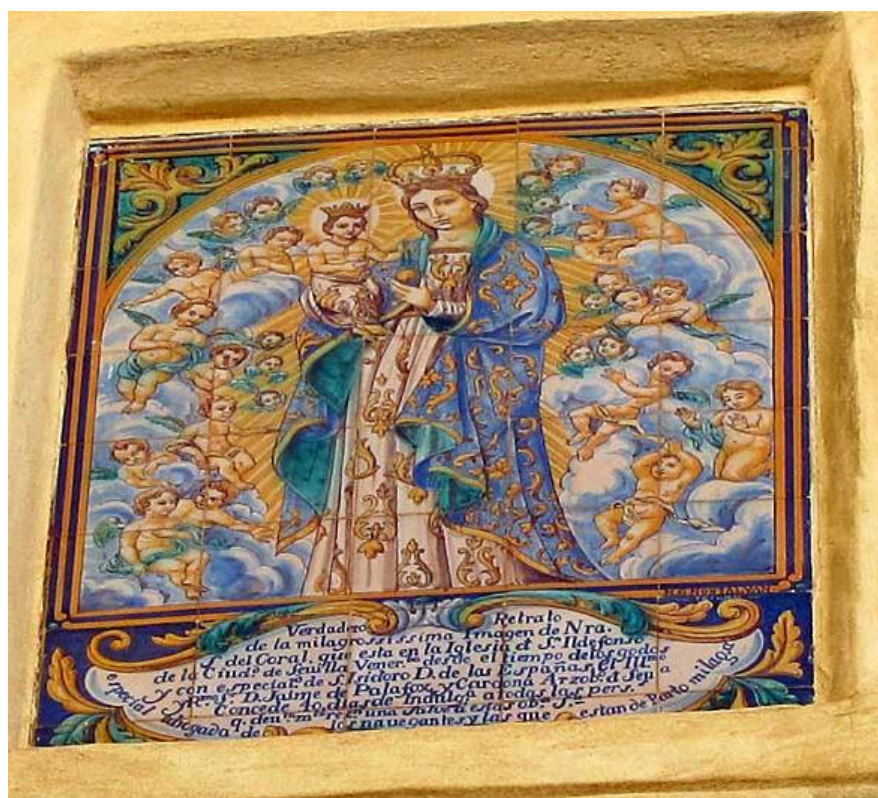 MONTALVAN
Verdadero Retrato
de la milagrossissima Imagen de Nra.
del Coral, que esta en la Iglesia d Sn Ildefonso
de la Ciudd de Seuilla desde el tiempo delos godos
y con de s. Isidoro D. de las Españas, el Illmo
D. Jaime de Palafox, y Cardona Arzobo d
Concede 40 dias de a todas las pers.
q. una a esta
especial Abogada de los nauegantes y las que estan de Parto milaga